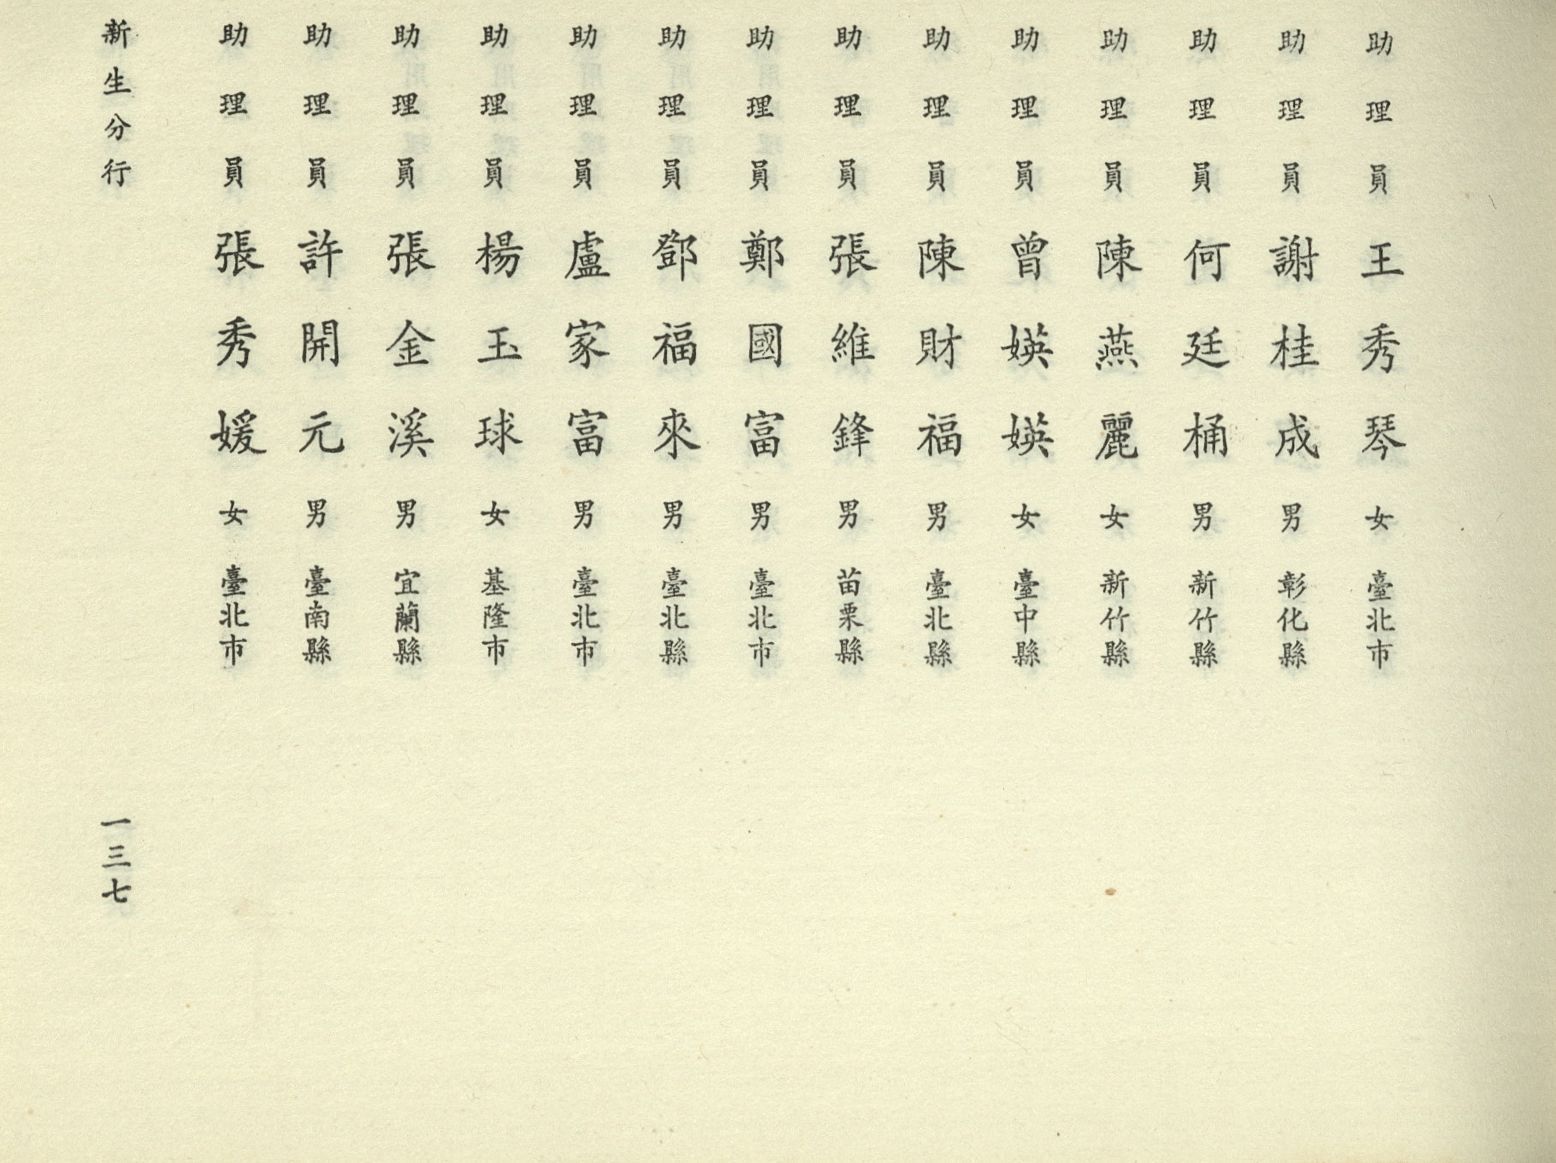 助理員王秀琴女臺北市
助理員謝桂成男彰化縣
助理員何廷桶男新竹縣
助理員陳燕麗女新竹縣
助理員曾媖媖女臺中縣
助理員陳財福男臺北縣
助理員張維鋒男苗栗縣
助理員鄭國富男臺北市
助理員鄧福來男臺北縣
助理員盧家富男臺北市
助理員楊玉球女基隆市
助理員張金溪男宜蘭縣
助理員許開元男臺南縣
助理員張秀媛女臺北市
新生分行
一三七